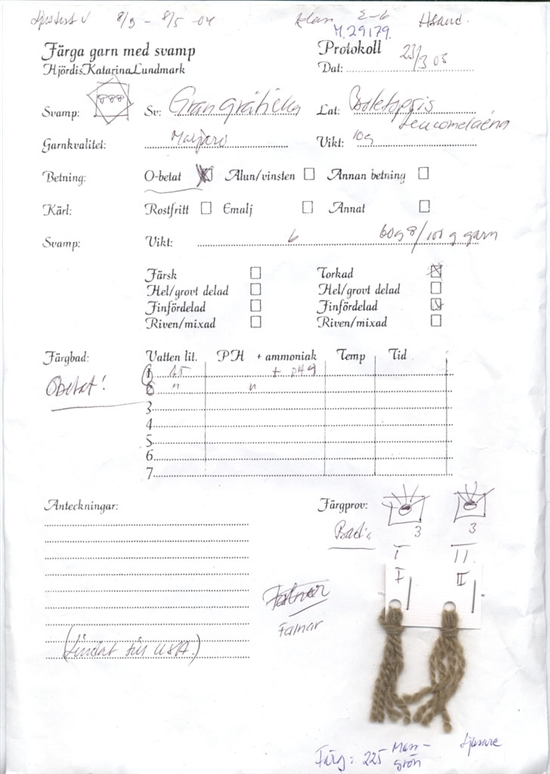 8/3 - 8/5 -04
M.29179.
Färga garn med svamp
Hjördis Katarina Lundmark
Protokoll
Dat: 23/3 05
Svamp:
Sv: Grangråticka
Lat: Boletopsis
Leucomelaena
Garnkvalitet:
Vikt: 10g
Betning: O-betat Alun/vinsten Annan betning
Kärl: Rostfritt Emalj Annat
Svamp: Vikt: 6 60g /100 g garn
Färsk Torkad
Hel/grovt delad Hel/grovt delad
Finfördelad Finfördelad
Riven/mixad Riven/mixad
Färgbad: Vatten lit. PH + ammoniak Temp Tid
1
Obetat! 2 " "
3
4
5
6
7
Anteckningar: Färgprov:
3 3
Bad:
I II
I II
Falnar
Färg: 225 Moss-
grön
Ljusare